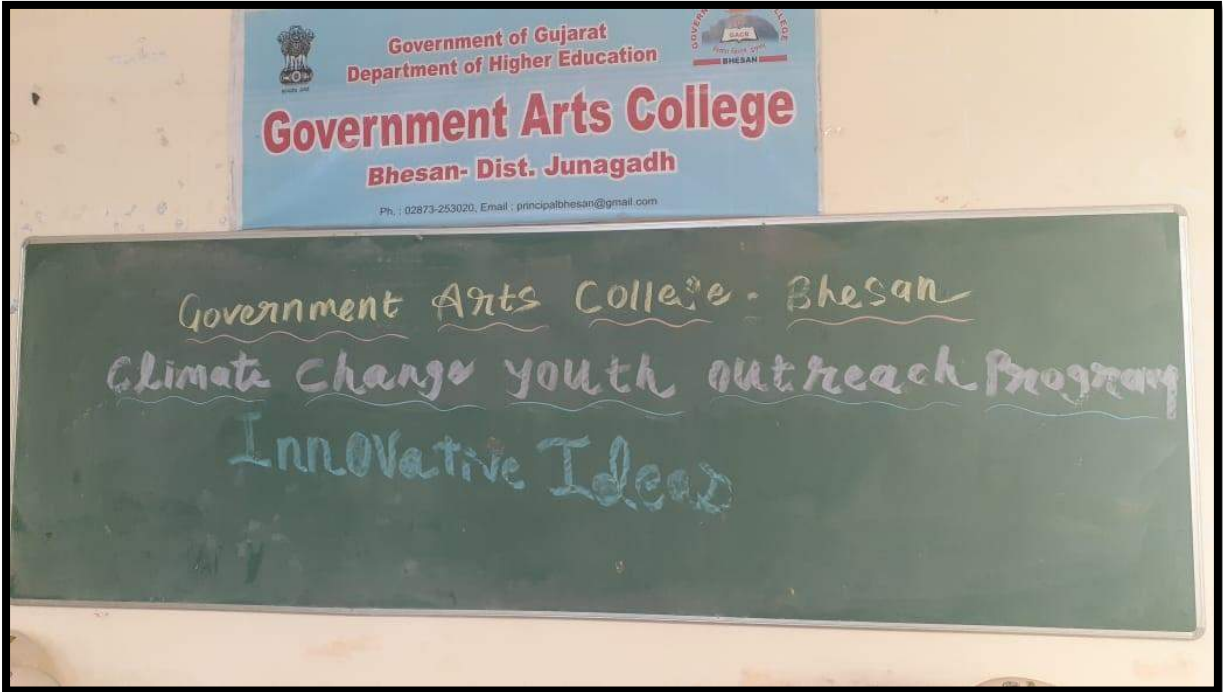 Government of Gujarat
Department of Higher Education
Government Arts College
Bhesan- Dist. Junagadh
Ph. : 02873-253020, Email : principalbhesan@gmail.com
GACB
BHESAN
Government Arts College - Bhesan
Climate Change youth outreach Program
Innovative Ideas